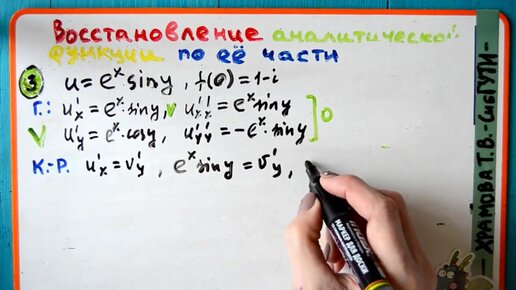 Восстановление аналитической
функции по её части
③ u=eˣ·siny, f(0)=1-i
Г.: u'ₓ=eˣ·siny, v u''ₓₓ=eˣsiny
v u'ᵧ=eˣ·cosy, u''ᵧᵧ=-eˣ·siny ] 0
К.-Р. u'ₓ=v'ᵧ, eˣsiny=v'ᵧ,
- ХРАМОВА Т.В. - СибГУТИ -
МАРКЕР ДЛЯ ДОСКИ